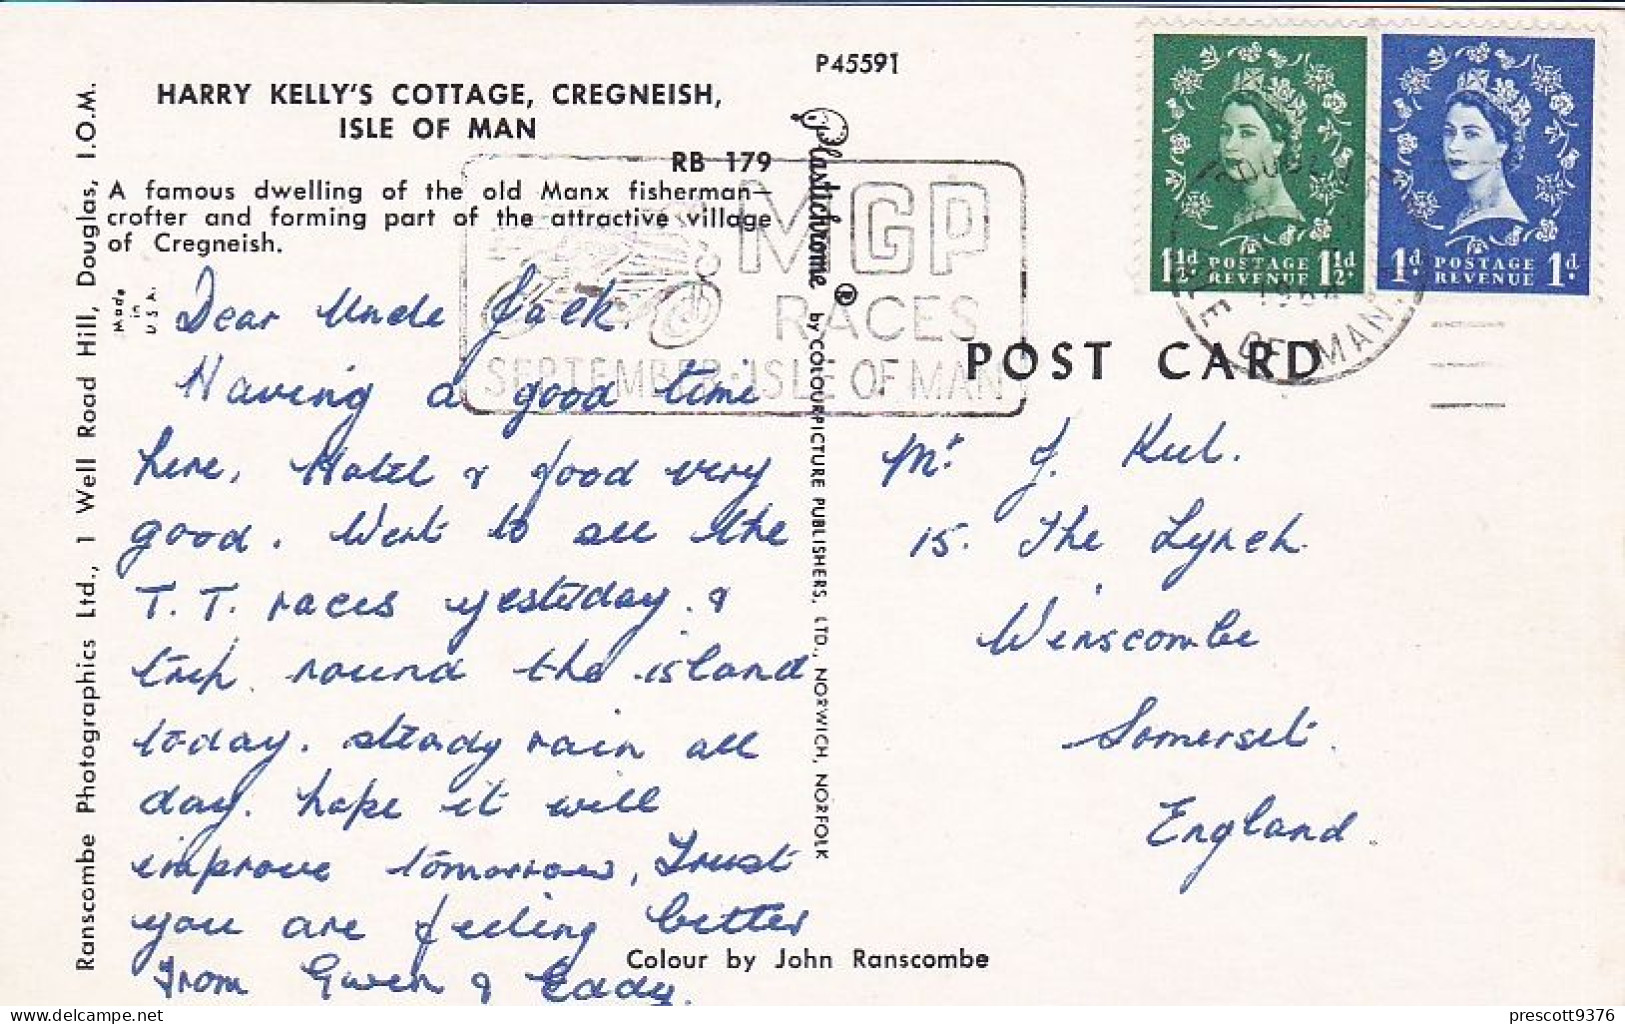 P45591
HARRY KELLY'S COTTAGE, CREGNEISH,
ISLE OF MAN
RB 179
A famous dwelling of the old Manx fisherman—
crofter and forming part of the attractive village
of Cregneish.
Made
in
U.S.A.
Ranscombe Photographics Ltd., 1 Well Road Hill, Douglas, I.O.M.
Plastichrome ® by COLOURPICTURE PUBLISHERS, LTD., NORWICH, NORFOLK
MGP
RACES
SEPTEMBER · ISLE OF MAN
1½d POSTAGE 1½d
REVENUE
1d POSTAGE 1d
REVENUE
OF MAN
POST CARD
Dear Uncle Jack.
Having a good time
here, Hotel & food very
good. Went to see the
T.T. races yesterday. &
trip round the island
today. steady rain all
day. hope it will
improve tomorrow, Trust
you are feeling better
From Gwen & Eddy.
Mr. J.
15. The Lynch.
Winscombe
Somerset.
England.
Colour by John Ranscombe
prescott9376